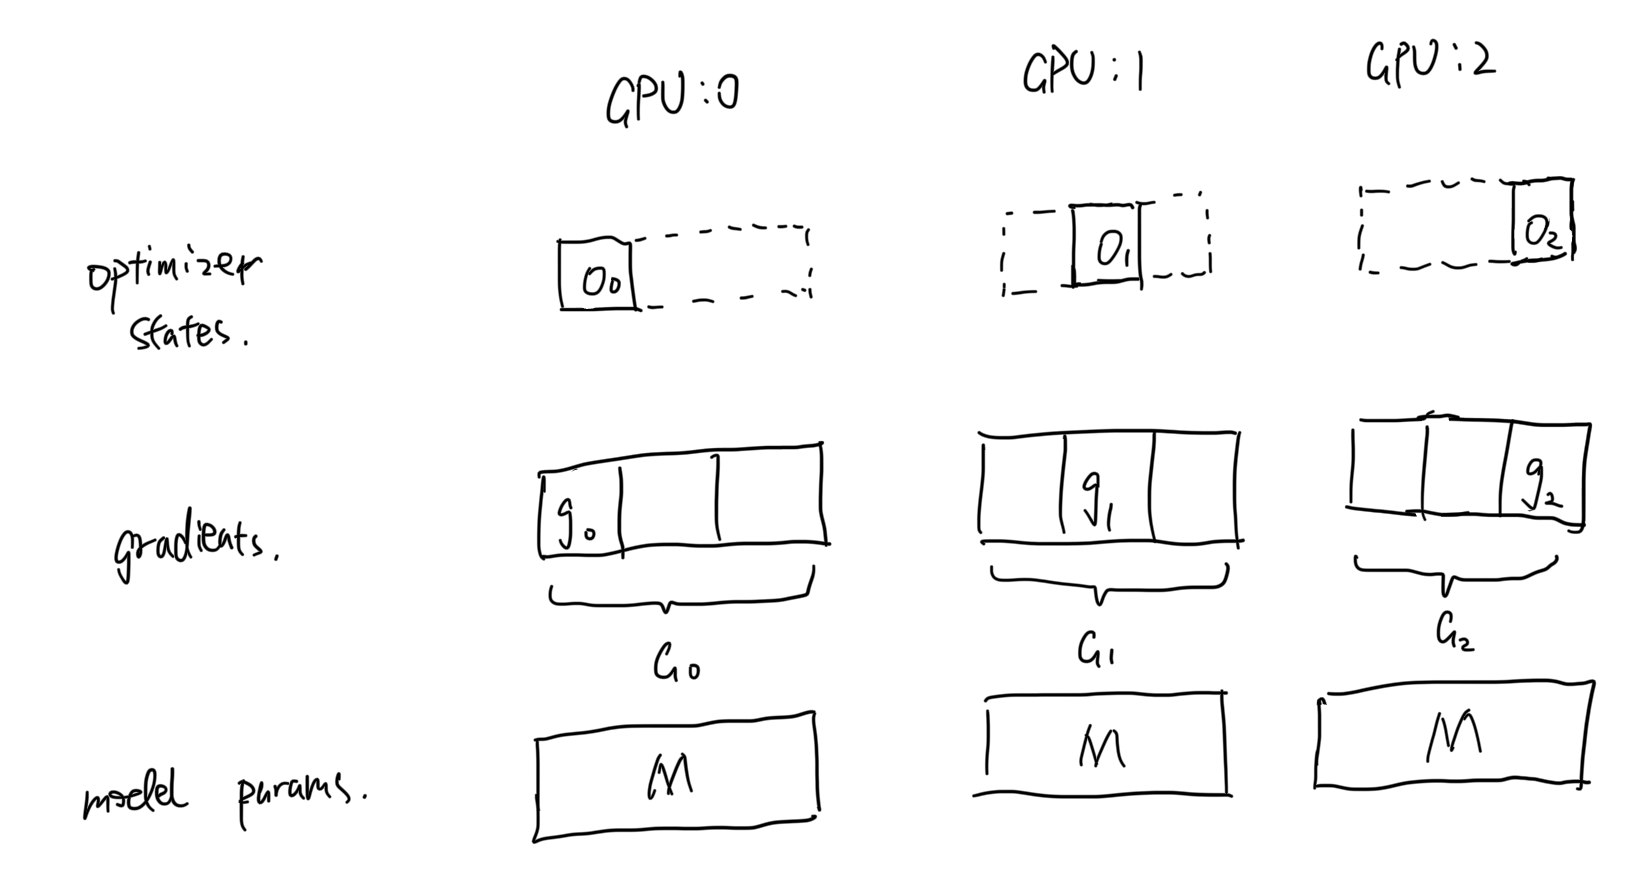 GPU:0
GPU:1
GPU:2
optimizer
states.
O₀
O₁
O₂
gradients.
g₀
g₁
g₂
G₀
G₁
G₂
model params.
M
M
M